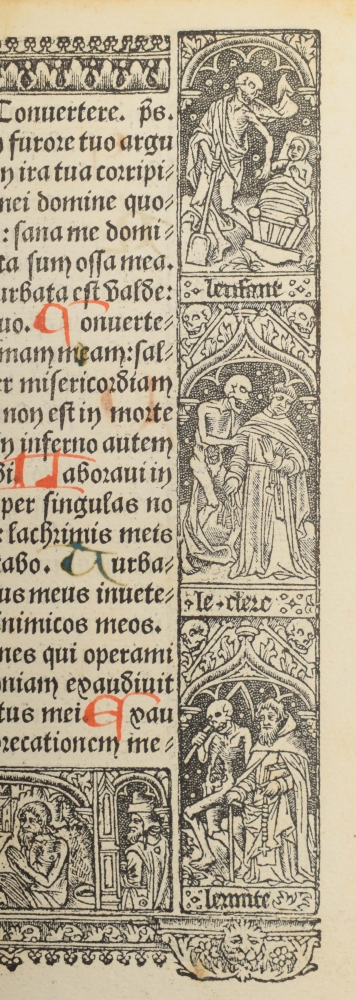 Conuertere. ps.
furore tuo argu
ira tua corripi-
mei domine quo-
: sana me domi-
ta sunt ossa mea.
urbata est valde:
uo. Conuerte-
mam meam: sal-
r misericordiam
non est in morte
in inferno autem
bi. Laboraui in
per singulas no
lachrimis meis
abo. Turba-
us meus inuete-
inimicos meos.
nes qui operami
oniam exaudiuit
tus mei. Exau
precationem me-
lenfant
le clerc
lermite